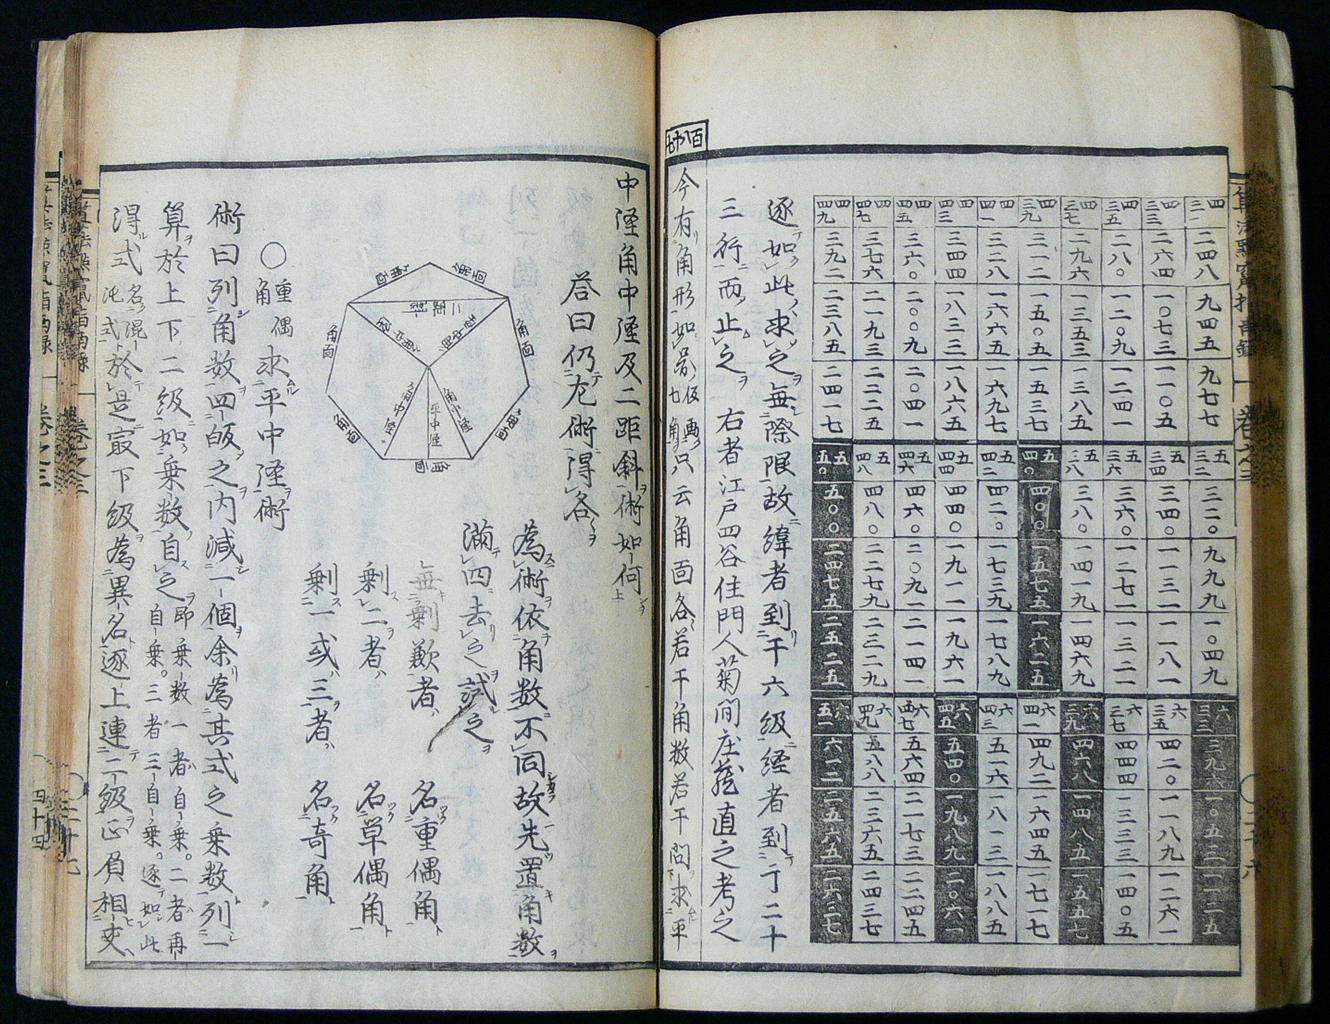 算法點竄指南錄 卷之三
四 三一 二四八 九四五 九七七
四 三三 二六四 一〇七三 一一〇五
四 三五 二八〇 一二〇九 一二四一
四 三七 二九六 一三五三 一三八五
四 三九 三一二 一五〇五 一五三七
四 四一 三二八 一六六五 一六九七
四 四三 三四四 一八三三 一八六五
四 四五 三六〇 二〇〇九 二〇四一
四 四七 三七六 二一九三 二二二五
四 四九 三九二 二三八五 二四一七
五 三二 三二〇 九九九 一〇四九
五 三四 三四〇 一一三一 一一八一
五 三六 三六〇 一二七一 一三二一
五 三八 三八〇 一四一九 一四六九
五 四〇 四〇〇 一五七五 一六二五
五 四二 四二〇 一七三九 一七八九
五 四四 四四〇 一九一一 一九六一
五 四六 四六〇 二〇九一 二一四一
五 四八 四八〇 二二七九 二三二九
五 五〇 五〇〇 二四七五 二五二五
六 三三 三九六 一〇五三 一一二五
六 三五 四二〇 一一八九 一二六一
六 三七 四四四 一三三三 一四〇五
六 三九 四六八 一四八五 一五五七
六 四一 四九二 一六四五 一七一七
六 四三 五一六 一八一三 一八八五
六 四五 五四〇 一九八九 二〇六一
六 四七 五六四 二一七三 二二四五
六 四九 五八八 二三六五 二四三七
六 五一 六一二 二五六五 二六三七
逐如此求之無際限故緯者到于六級経者到于二十
三行而止之 右者江戸四谷住門人菊間庄蔵直之考之
百八十七
今有角形如圖仮画七角只云角面各若干角数若干問求平
中徑角中徑及二距斜術如何
答曰仍左術得各
為術依角数不同故先置角数
満四去之試之
無剰歟者 名重偶角
剰二者 名草偶角
剰一或三者 名奇角
角面
角面
角面
角面
角面
角面
角面
二距斜
角中徑
角中徑
角中徑
角中徑
平中徑
〇重偶角求平中徑術
術曰列角数四皈之内減一個余為其式之乗数列一
算於上下二級如乗数自之即乗数一者自乗。二者再自乗。三者三自乗。逐如此
得式名混沌式於是最下級為異名逐上連二級正負相夾
卷之三
四十四